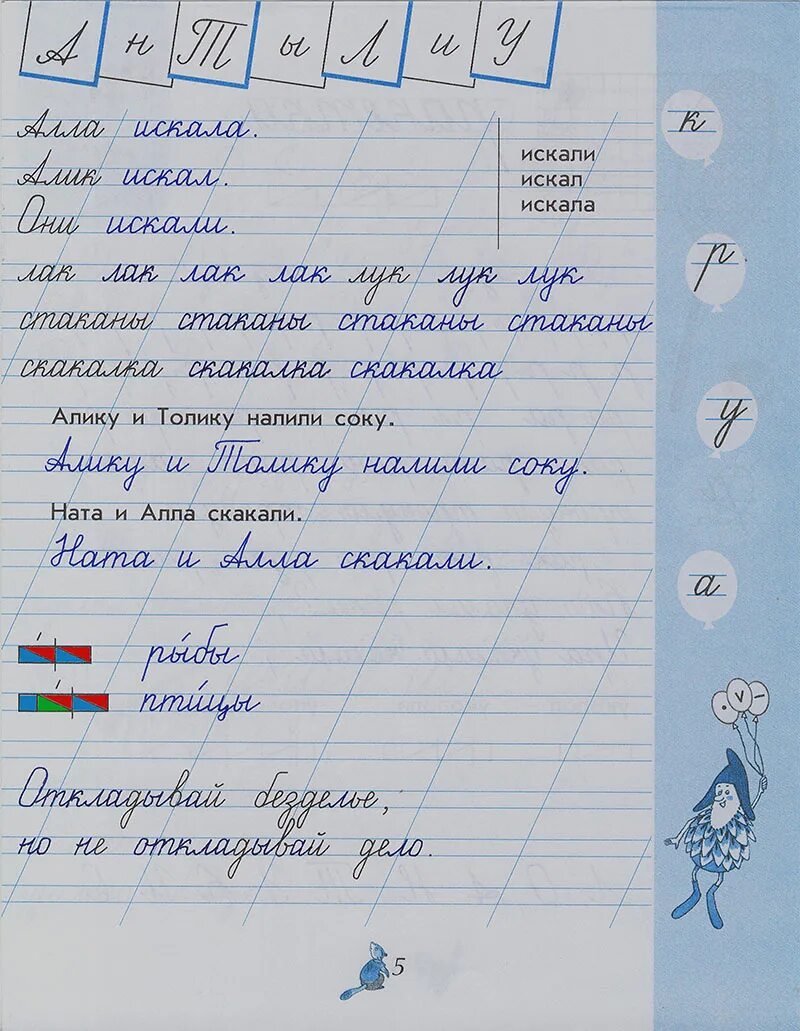 А н Т ы Л и У
Алла искала.
Алик искал.
Они искали.
искали
искал
искала
лак лак лак лак лук лук лук
стаканы стаканы стаканы стаканы
скакалка скакалка скакалка
Алику и Толику налили соку.
Алику и Толику налили соку.
Ната и Алла скакали.
Ната и Алла скакали.
ры́бы
пти́цы
Откладывай безделье,
но не откладывай дело.
к
р
у
а
5